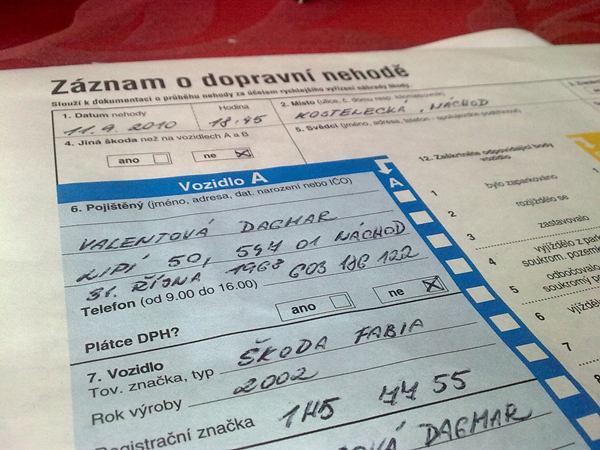 Záznam o dopravní nehodě
Slouží k dokumentaci o průběhu nehody za účelem rychlejšího vyřízení náhrady škody.
1. Datum nehody Hodina
11. 9. 2010 18:45
2. Místo (ulice, č. domu resp.
KOSTELECKÁ, NÁCHOD
4. Jiná škoda než na vozidlech A a B
ano ne
5. Svědci (jméno, adresa, telefon -
Vozidlo A
A
6. Pojištěný (jméno, adresa, dat. narození nebo IČO)
VALENTOVÁ DAGMAR
LIPÍ 50, 547 01 NÁCHOD
31. ŘÍJNA 1968 603 186 122
Telefon (od 9.00 do 16.00)
ano ne
Plátce DPH?
7. Vozidlo
Tov. značka, typ ŠKODA FABIA
Rok výroby 2002
Registrační značka 1H5 7755
DAGMAR
12. Zaškrtněte odpovídající body
vozidlo
1 bylo zaparkováno
2 rozjíždělo se
3 zastavovalo
4 vyjíždělo z park
soukrom. pozemk
5 odbočovalo
soukromý
6 vjížděl
7
8